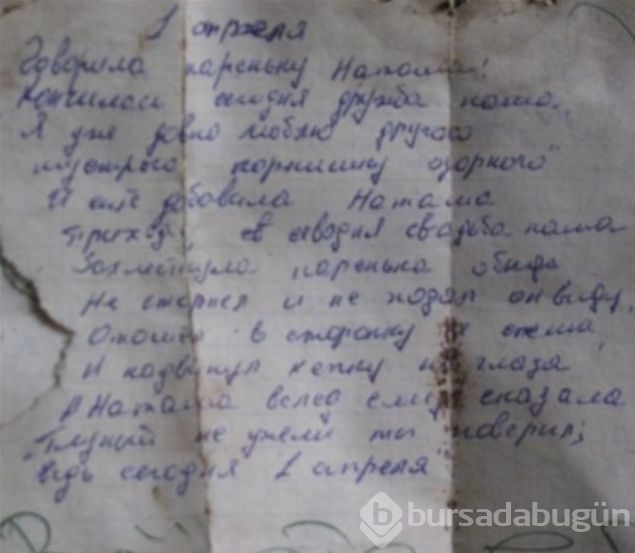 1 апреля
Говорила пареньку Наташа!
Кончилась сегодня дружба наша,
Я уже давно люблю другого
шустрого парнишку озорного
И ещё добавила Наташа
Приходи, сегодня свадьба наша
Захлестнула паренька обида
Не стерпел и не подал он виду,
Отошёл в сторонку
И надвинул кепку на глаза
А Наташа вслед ему сказала
Глупый не ужели ты поверил;
ведь сегодня 1 апреля
bursadabugün